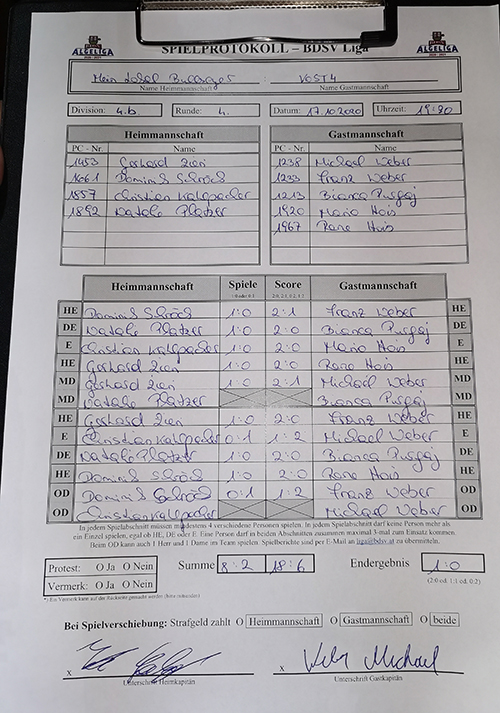 ALGELIGA SPIELPROTOKOLL – BDSV Liga ALGELIGA
Mein Lokal : VOST4
Name Heimmannschaft Name Gastmannschaft
Division: 4.b Runde: 4. Datum: 17.10.2020 Uhrzeit:
Heimmannschaft Gastmannschaft
PC - Nr. Name PC - Nr. Name
1453 Gerhard 1238 Michael Weber
1661 Dominik 1233 Franz Weber
1857 Christian 1213 Bianca
1892 Natale Platzer 1920 Mario Hois
1967 Rene Hois
Heimmannschaft Spiele Score Gastmannschaft
HE Dominik 1:0 2:1 Franz Weber HE
DE Natale Platzer 1:0 2:0 Bianca DE
E Christian 1:0 2:0 Mario Hois E
HE Gerhard 1:0 2:0 Rene Hois HE
MD Gerhard 1:0 2:1 Michael Weber MD
MD Natale Platzer Bianca MD
HE Gerhard 1:0 2:0 Franz Weber HE
E Christian 0:1 1:2 Michael Weber E
DE Natale Platzer 1:0 2:0 Bianca DE
HE Dominik 1:0 2:0 Rene Hois HE
OD Dominik 0:1 1:2 Franz Weber OD
OD Christian Michael Weber OD
In jedem Spielabschnitt müssen mindestens 4 verschiedene Personen spielen. In jedem Spielabschnitt darf keine Person mehr als
ein Einzel spielen, egal ob HE, DE oder E. Eine Person darf in beiden Abschnitten zusammen maximal 3-mal zum Einsatz kommen.
Beim OD kann auch 1 Herr und 1 Dame im Team spielen. Spielberichte sind per E-Mail an liga@bdsv.at zu übermitteln.
Protest: O Ja O Nein Summe 8:2 18:6 Endergebnis 1:0
Vermerk: O Ja O Nein (2:0 od. 1:1 od. 0:2)
Bei Spielverschiebung: Strafgeld zahlt O Heimmannschaft O Gastmannschaft O beide
x x Michael
Unterschrift Heimkapitän Unterschrift Gastkapitän